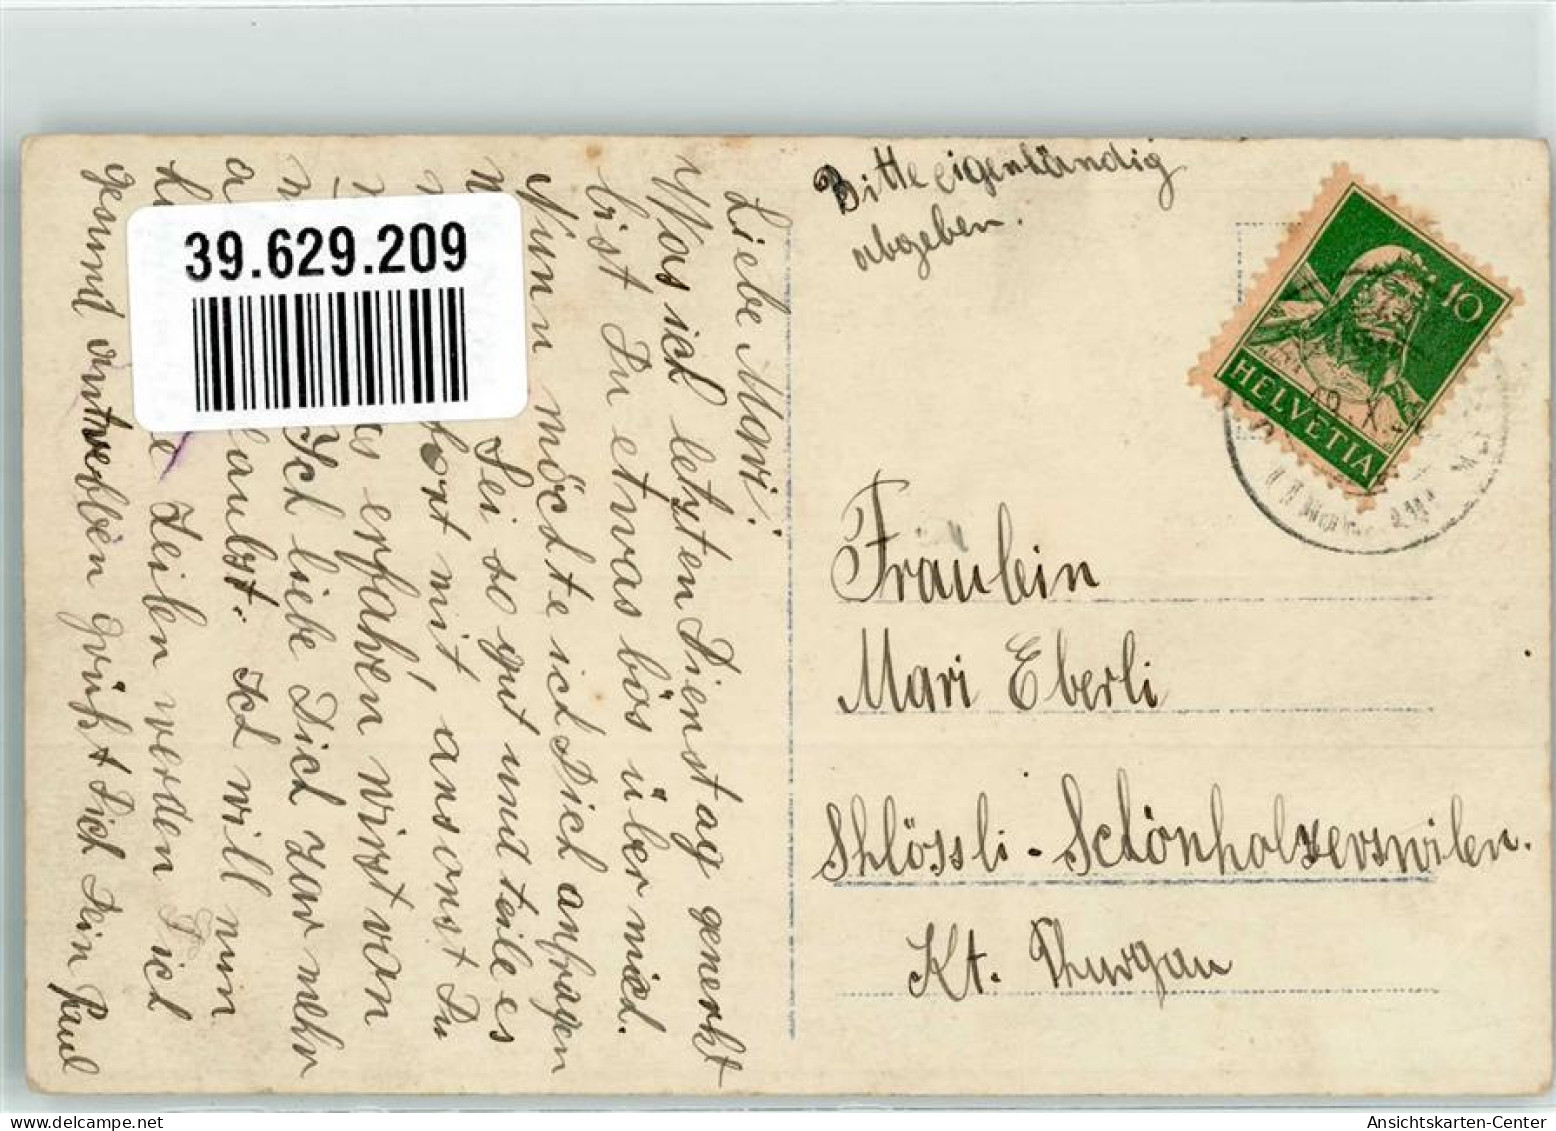 39.629.209
Liebe Mari!
Was ich letzten Dienstag generkt
bist Du etwas bös über mich.
Nunn möchte ich Dich anfragen
Sei so gut und teile es
fort mit, ansonst Du
es erfahren wirst von
Ich liebe Dich zwar mehr
laubst. Ich will nun
Zeilen werden Dich
gesund antreffen grüßt Dich Dein Paul
Bitte eigenhändig
abgeben.
10
HELVETIA
Fräulein
Mari Eberli
Shlössli - Schönholzerswilen.
Kt. Thurgau
Ansichtskarten-Center